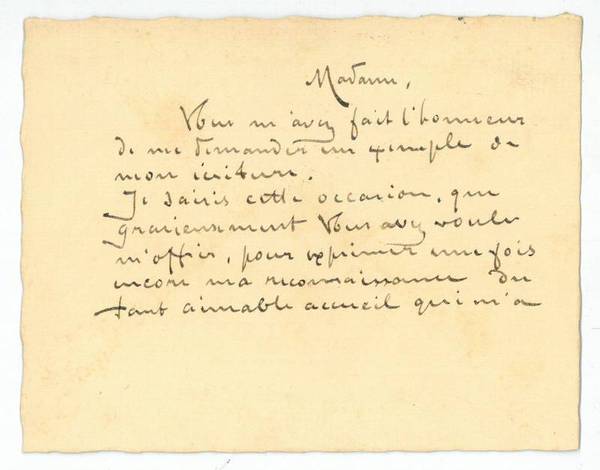 Madame,
Vous m'avez fait l'honneur
de me demander un exemple de
mon écriture.
Je saisis cette occasion, que
gracieusement Vous avez voulu
m'offrir, pour exprimer une fois
encore ma reconnaissance du
tant aimable accueil qui m'a